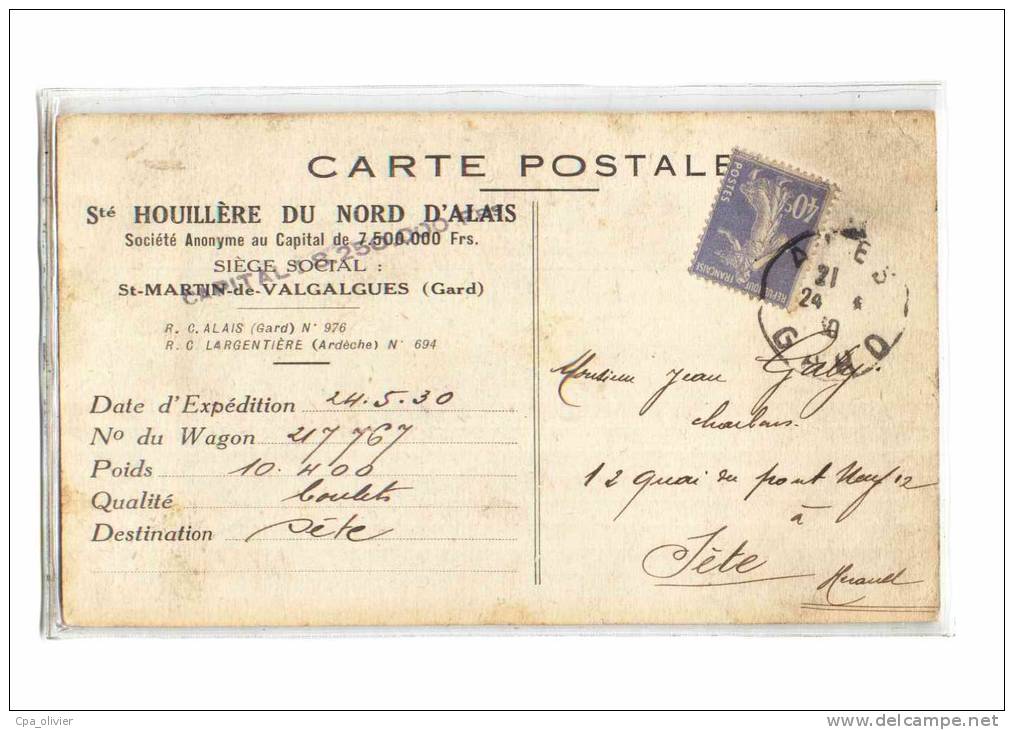 CARTE POSTALE
Sté HOUILLÈRE DU NORD D'ALAIS
Société Anonyme au Capital de 7.500.000 Frs.
CAPITAL : 8.250.000 Frs
SIÈGE SOCIAL :
St-MARTIN-de-VALGALGUES (Gard)
R. C. ALAIS (Gard) N° 976
R. C LARGENTIÈRE (Ardèche) N° 694
Date d'Expédition 24.5.30
No du Wagon 217 767
Poids 10.400
Qualité boulets
Destination Sète
40c
POSTES
REPUBLIQUE FRANÇAISE
21
24
GARD
Monsieur Jean Gaby
charbons.
12 quai du pont Neuf 12
à
Sète
Herault
Cpa_olivier
www.delcampe.net